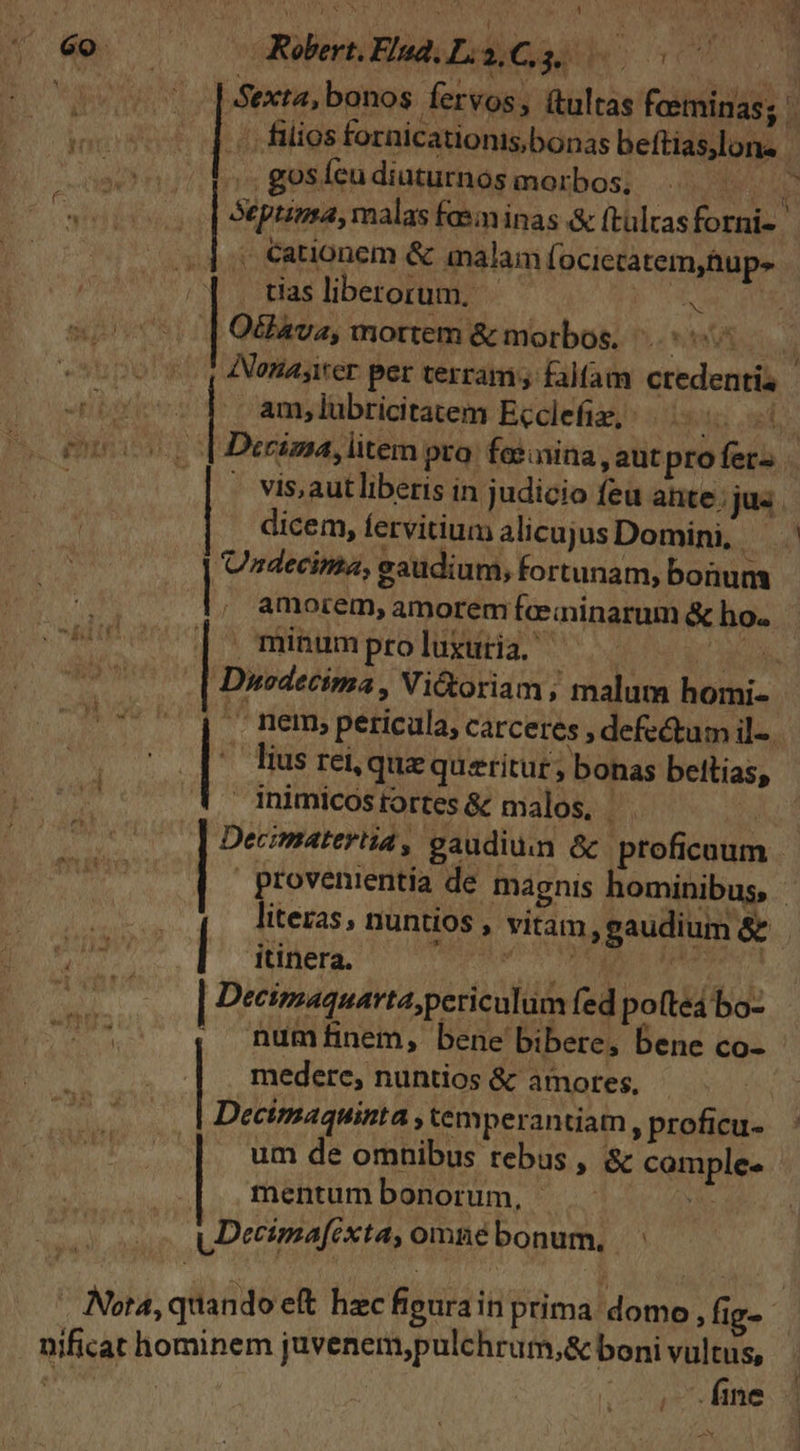 60 Robert. Flud. L. 2. C. 3.
Sexta, bonos ſervos, ſtultas fœminas;
filios fornicationis, bonas beſtias, lon-
gos ſeu diuturnos morbos.
Septima, malas fœminas & ſtultas forni-
cationem & malam ſocietatem, nup-
tias liberorum.
Octava, mortem & morbos.
Nona, iter per terram, falſam credenti-
am, lubricitatem Eccleſiæ.
Decima, litem pro fœmina, aut pro ſer-
vis, aut liberis in judicio ſeu ante ju-
dicem, ſervitium alicujus Domini.
Undecima, gaudium, fortunam, bonum
amorem, amorem fœminarum & ho-
minum pro luxuria.
Duodecima, Victoriam, malum homi-
nem, pericula, carceres, defectum il-
lius rei, quæ quæritur, bonas beſtias,
inimicos fortes & malos.
Decimatertia, gaudium & proficuum
provenientia de magnis hominibus,
literas, nuntios, vitam, gaudium &
itinera.
Decimaquarta, periculum ſed poſtea bo-
num finem, bene bibere, bene co-
medere, nuntios & amores.
Decimaquinta, temperantiam, proficu-
um de omnibus rebus, & comple-
mentum bonorum.
Decimaſexta, omne bonum.
Nota, quando eſt hæc figura in prima domo, ſig-
nificat hominem juvenem, pulchrum, & boni vultus,
ſine